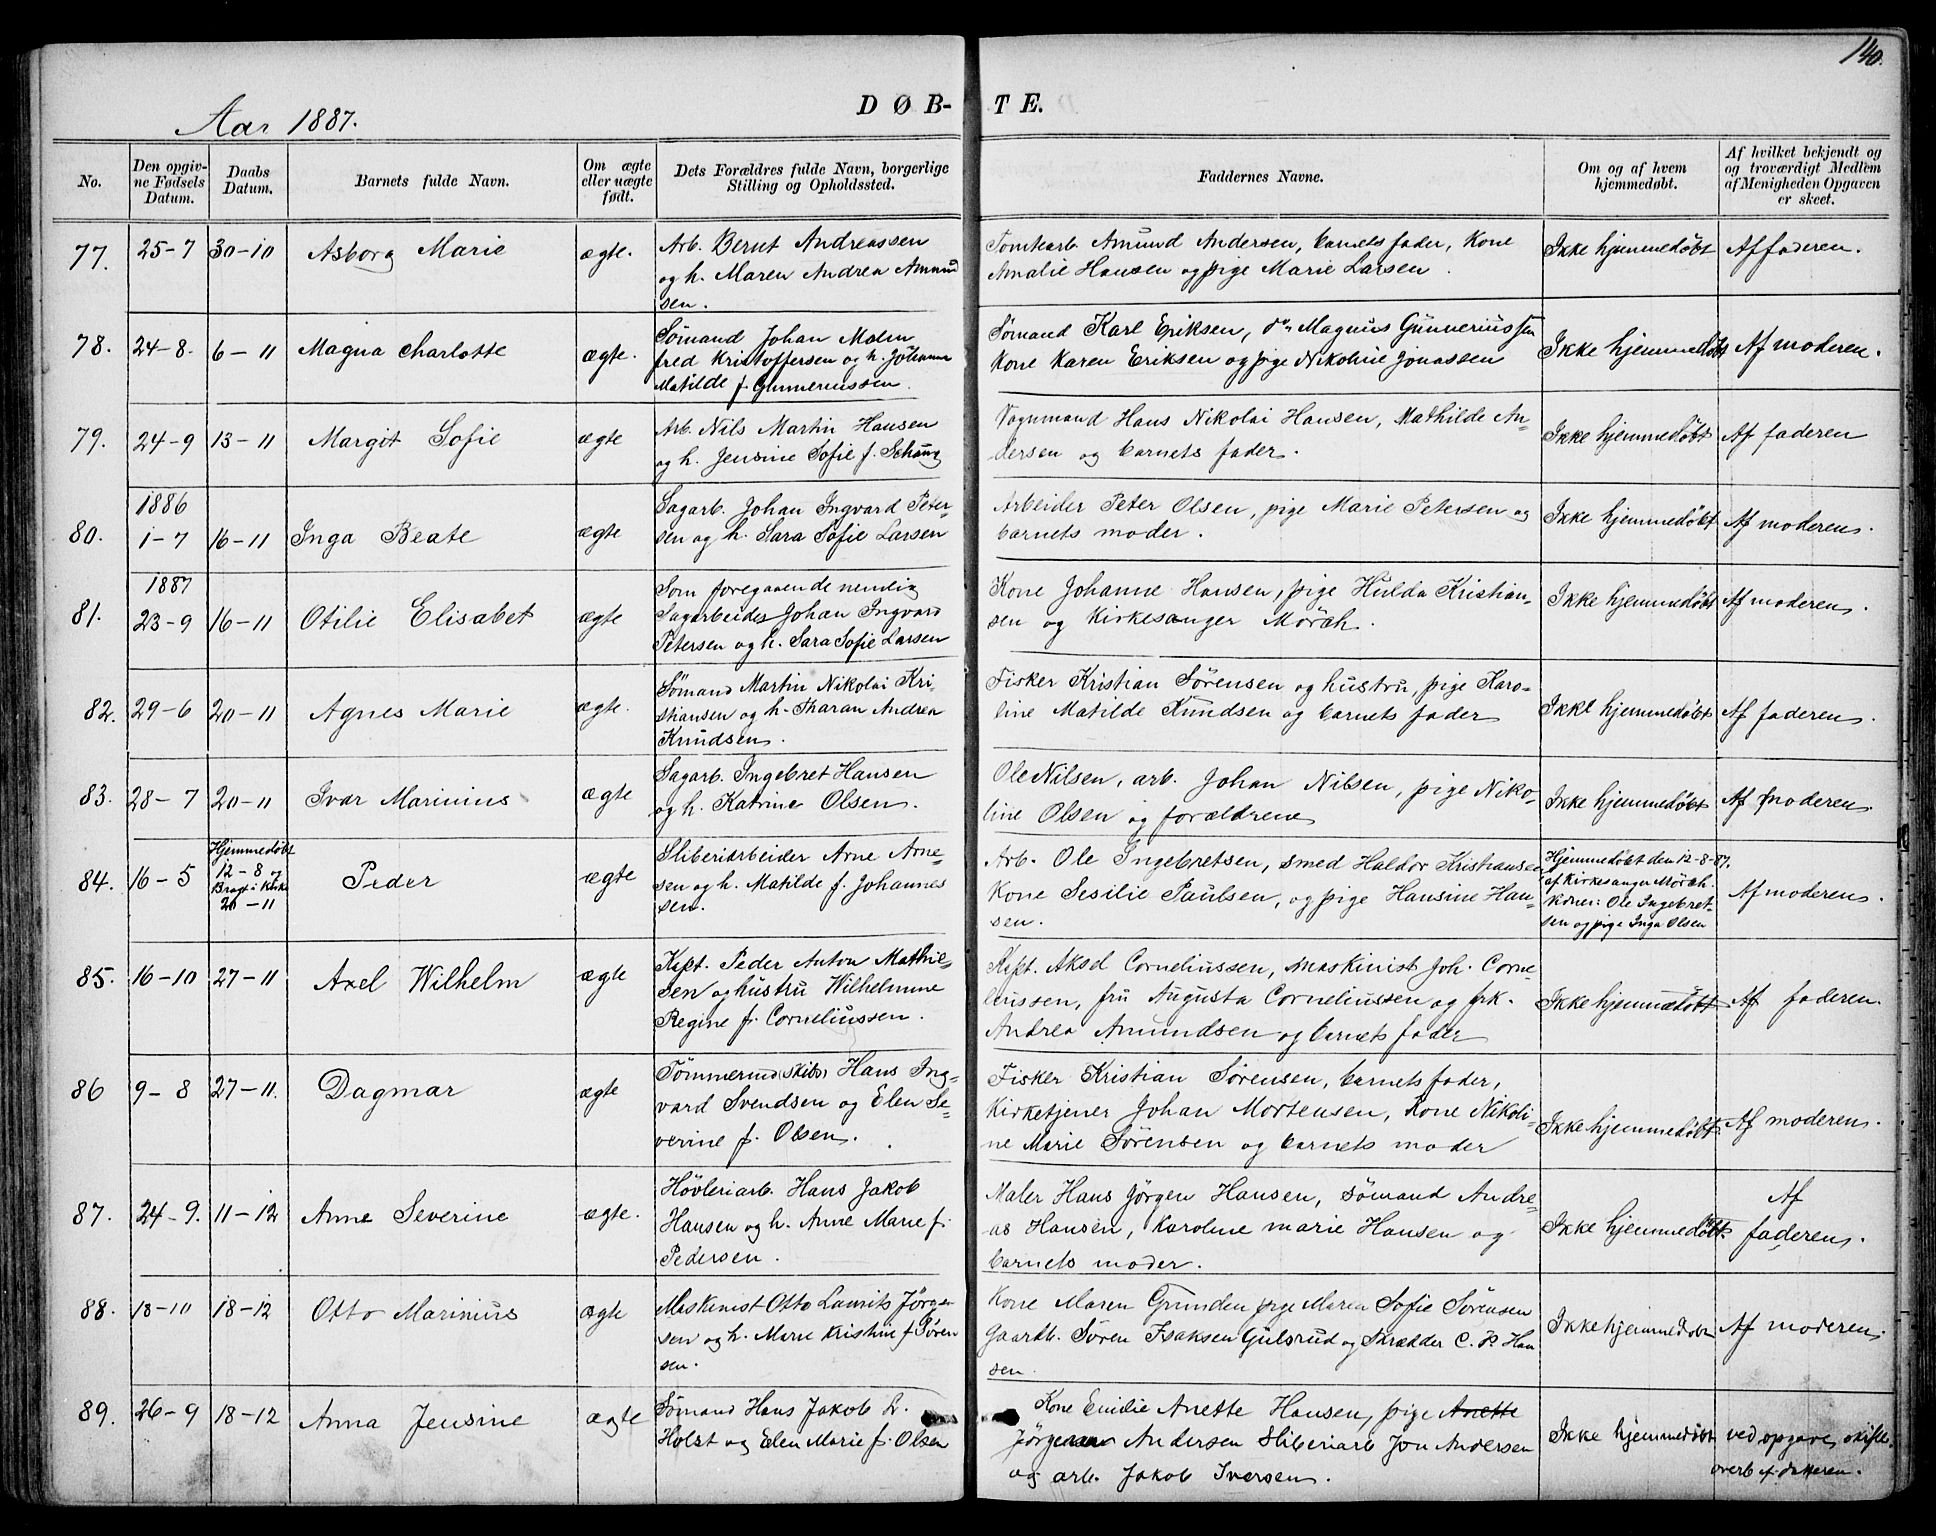 140.
Aar 1887.
DØB-
TE.
No.
Den opgiv-
ne Fødsels
Datum.
Daabs
Datum.
Barnets fulde Navn.
Om ægte
eller uægte
født.
Dets Forældres fulde Navn, borgerlige
Stilling og Opholdssted.
Faddernes Navne.
Om og af hvem
hjemmedøbt.
Af hvilket bekjendt og
og troværdigt Medlem
af Menigheden Opgaven
er skeet.
77. 25-7 30-10 Asborg Marie ægte.
Arb. Bernt Andreassen
og h. Maren Andrea Amund
sen.
Tomtearb. Amund Andersen, barnets fader, Kone
Amalie Hansen og pige Marie Larsen.
Ikke hjemmedøbt
Af faderen.
78. 24-8. 6-11 Magna Charlotte ægte.
Sømand Johan Malm
fred Kristoffersen og h. Johanne
Matilde f. Gunneriussen.
Sømand Karl Eriksen, do Magnus Gunneriussen
Kone Karen Eriksen og pige Nikoline Jonassen
Ikke hjemmedøbt
Af moderen.
79. 24-9 13-11 Margit Sofie ægte
Arb. Nils Martin Hansen
og h. Jensine Sofie f. Schaug
Vognmand Hans Nikolai Hansen, Mathilde An-
dersen og barnets fader.
Ikke hjemmedøbt
Af faderen
80. 1886
1-7 16-11 Inga Beate ægte
Sagarb. Johan Ingvard Peter-
sen og h. Sara Sofie Larsen
Arbeider Peter Olsen, pige Marie Petersen og
barnets moder.
Ikke hjemmedøbt
Af moderen.
81. 1887
23-9 16-11 Otilie Elisabet ægte
Som foregaaende nemlig
Sagarbeider Johan Ingvard
Petersen og h. Sara Sofie Larsen
Kone Johanne Hansen, pige Hulda Kristian-
sen og Kirkesanger Mörch.
Ikke hjemmedøbt
Af moderen.
82. 29-6 20-11 Agnes Marie ægte.
Sømand Martin Nikolai Kri-
stiansen og h. Tharan Andrea
Knudsen.
Fisker Kristian Sørensen og hustru, pige Karo-
line Matilde Knudsen og barnets fader
Ikke hjemmedøbt
Af faderen.
83. 28-7 20-11 Ivar Marinius ægte
Sagarb. Ingebret Hansen
og h. Katrine Olsen.
Ole Nilsen, arb. Johan Nilsen, pige Niko-
line Olsen og forældrene
Ikke hjemmedøbt
Af moderen.
84. 16-5 Hjemmedøbt
12-8 og
Bragt i Kirke
20-11 Peder ægte
Sliberiarbeider Arne Arne-
sen og h. Matilde f. Johannes
sen.
Arb. Ole Ingebretsen, smed Haldor Kristiansen
Kone Sesilie Paulsen, og pige Hansine Han-
sen.
Hjemmedøbt den 12-8-87.
af Kirkesanger Mörch.
Kone: Ole Ingebret-
sen og pige Inga Olsen
Af moderen.
85. 16-10 27-11 Axel Wilhelm ægte
Kapt. Peder Anton Mathie-
sen og hustru Wilhelmine
Regine f. Corneliussen.
Kapt. Aksel Corneliussen, Maskinist Joh. Corne-
liussen, fru Augusta Corneliussen og frk.
Andrea Amundsen og barnets fader
Ikke hjemmedøbt
Af faderen.
86 9-8 27-11. Dagmar ægte
Tømmermd (skibs) Hans Ing-
vard Svendsen og Elen Se-
verine f. Olsen.
Fisker Kristian Sørensen, barnets fader,
Kirketjener Johan Mortensen, Kone Nikoli-
ne Marie Sørensen og barnets moder
Ikke hjemmedøbt
Af moderen.
87. 24-9. 11-12 Anne Severine ægte.
Høvleriarb. Hans Jakob
Hansen og h. Anne Marie f.
Pedersen.
Maler Hans Jørgen Hansen, sømand Andre-
as Hansen, Karoline marie Hansen og
barnets moder.
Ikke hjemmedøbt
Af
faderen.
88. 18-10 18-12 Otto Marinius ægte
Maskinist Otto Laurits Jörgen
sen og h. Marie Kristine f. Sören
sen.
Kone Maren Grunden pige Maren Sofie Sørensen
Gaardb. Søren Isaksen Gulsrud og Skrædder C. H. Han
sen.
Ikke hjemmedøbt
Af moderen.
89. 26-9 18-12 Anna Jensine ægte
Sømand Hans Jakob L.
Holst og Elen Marie f. Olsen
Kone Emilie Anette Hansen, pige Anette
Jørgensen Andersen Sliberiarb Jon Andersen
og arb. Jakob Iversen.
Ikke hjemmedøbt
ved opgave, skiftl.
overb. f.